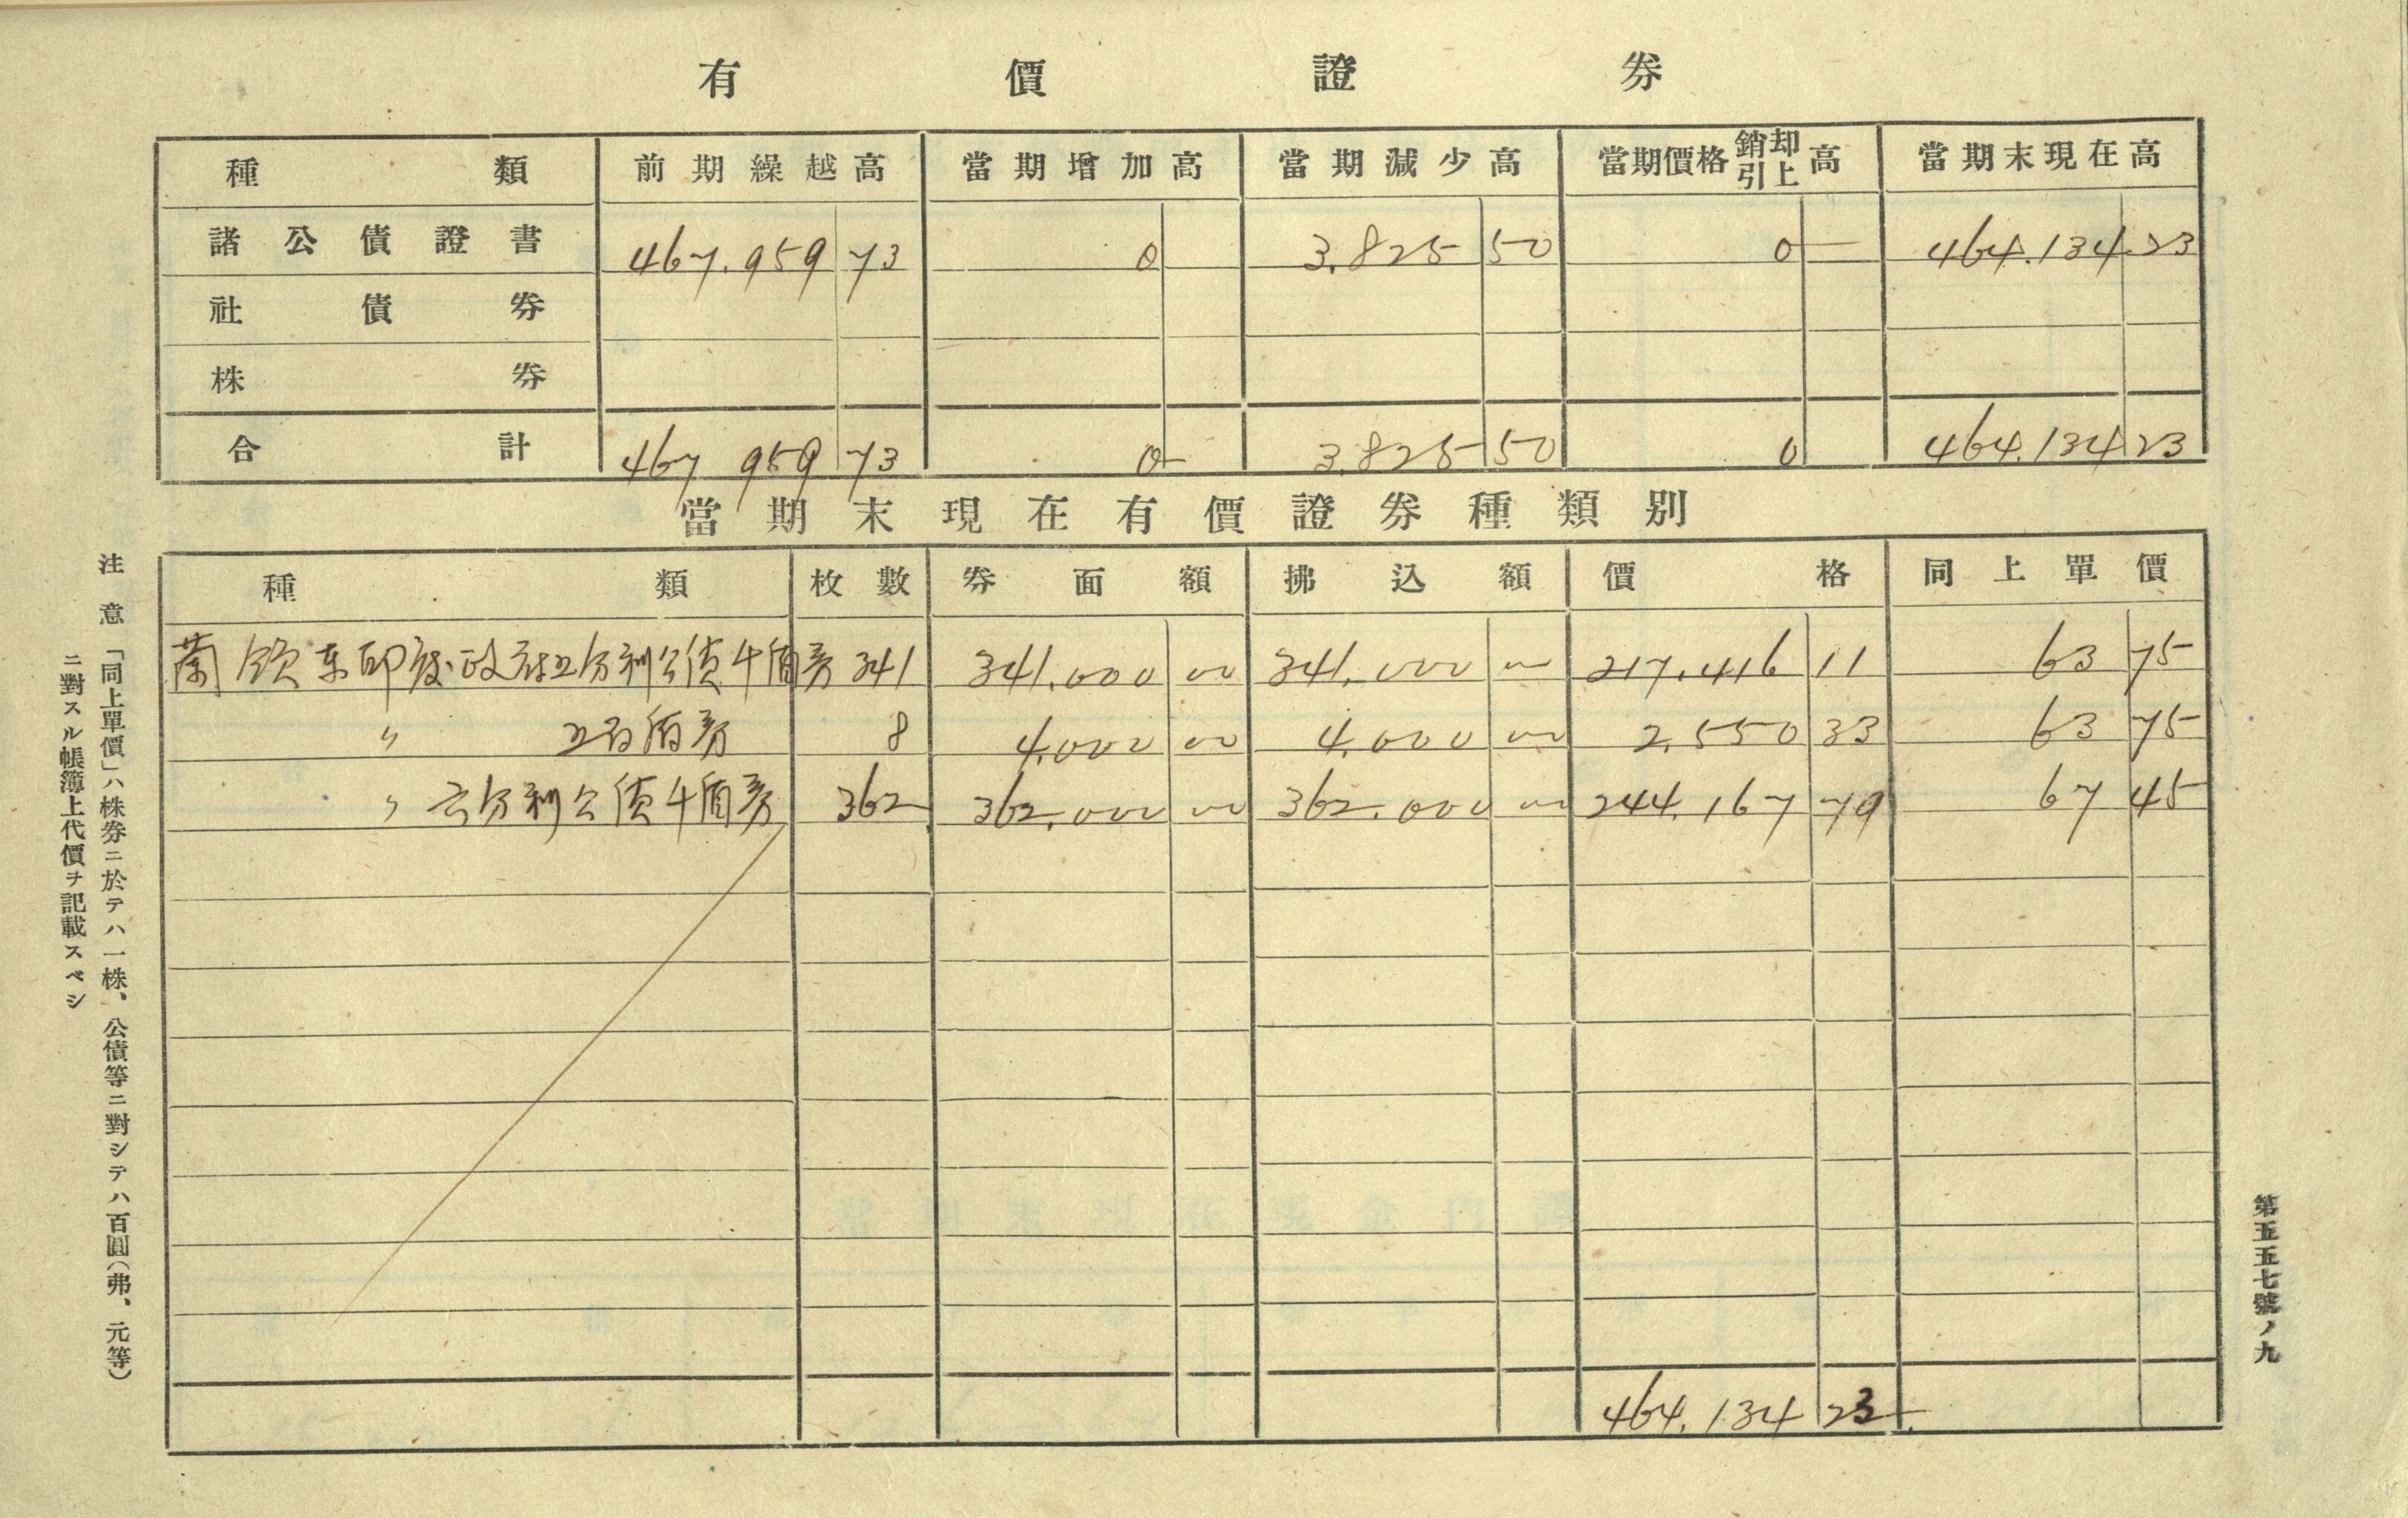 有價證券
種類 前期繰越高 當期增加高 當期減少高 當期價格銷却引上高 當期末現在高
諸公債證書 467.959 73 0 3.825 50 0 — 464.134.23
社債券
株券
合計 467 959 73 0 3.825 50 0 464.134 23
當期末現在有價證券種類別
種類 枚數 券面額 拂込額 價格 同上單價
蘭領東印度政府五分利公債千盾券 341 341.000 00 341.000 00 217.416 11 63 75
〃 五百盾券 8 4.000 00 4.000 00 2.550 33 63 75
〃 六分利公債千盾券 362 362.000 00 362.000 00 244.167 79 67 45
464.134 23
注意 「同上單價」ハ株券ニ於テハ一株、公債等ニ對シテハ百圓(弗、元等)
ニ對スル帳簿上代價ヲ記載スベシ
第五五七號ノ九